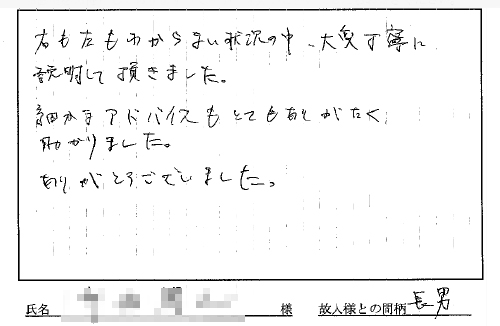 右も左もわからない状況の中、大変丁寧に
説明して頂きました。
細かなアドバイスもとてもありがたく
助かりました。
ありがとうございました。
氏名 様 故人様との間柄 長男